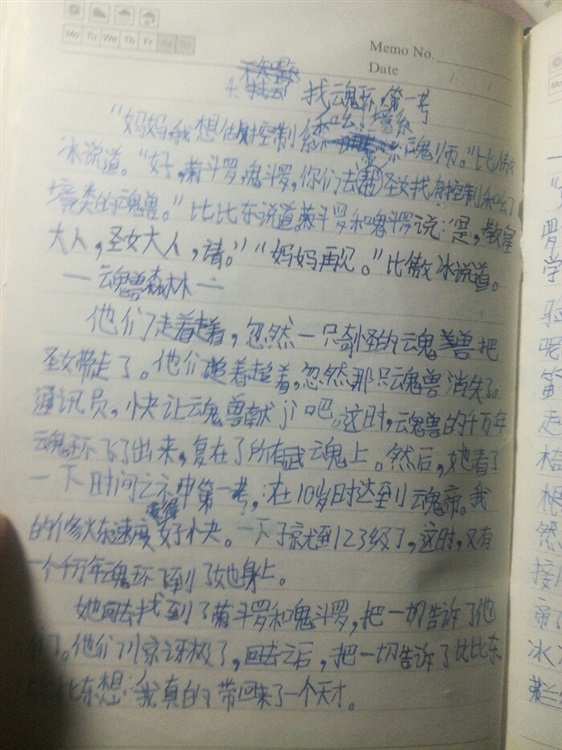 Mo Tu We Th Fr Sa Su
Memo No.
Date / /
4. 找魂环,第一考
和幻境系
“妈妈我想做控制系魂师。”比傲
冰说道。“好,菊斗罗,鬼斗罗,你们去帮圣女找控制和幻
境类的魂兽。”比比东说道菊斗罗和鬼斗罗说:“是,教皇
大人,圣女大人,请。”“妈妈再见。”比傲冰说道。
一魂兽森林一
他们走着走着,忽然一只奇怪的魂兽把
圣女带走了。他们追着追着,忽然那只魂兽消失了。
通讯员,快让魂兽献ji吧。这时,魂兽的千万年
魂环飞了出来,复在了所有武魂上。然后,她看了
一下时间之神第一考,:在10岁时达到魂帝。我
的修炼速度变得好快。一下子就到23级了,这时,又有
一个千万年魂环到了她身上。
她回去找到了菊斗罗和鬼斗罗,把一切告诉了他
们。他们惊讶极了,回去之后,把一切告诉了比比东
比比东想:我真的带回来了一个天才。